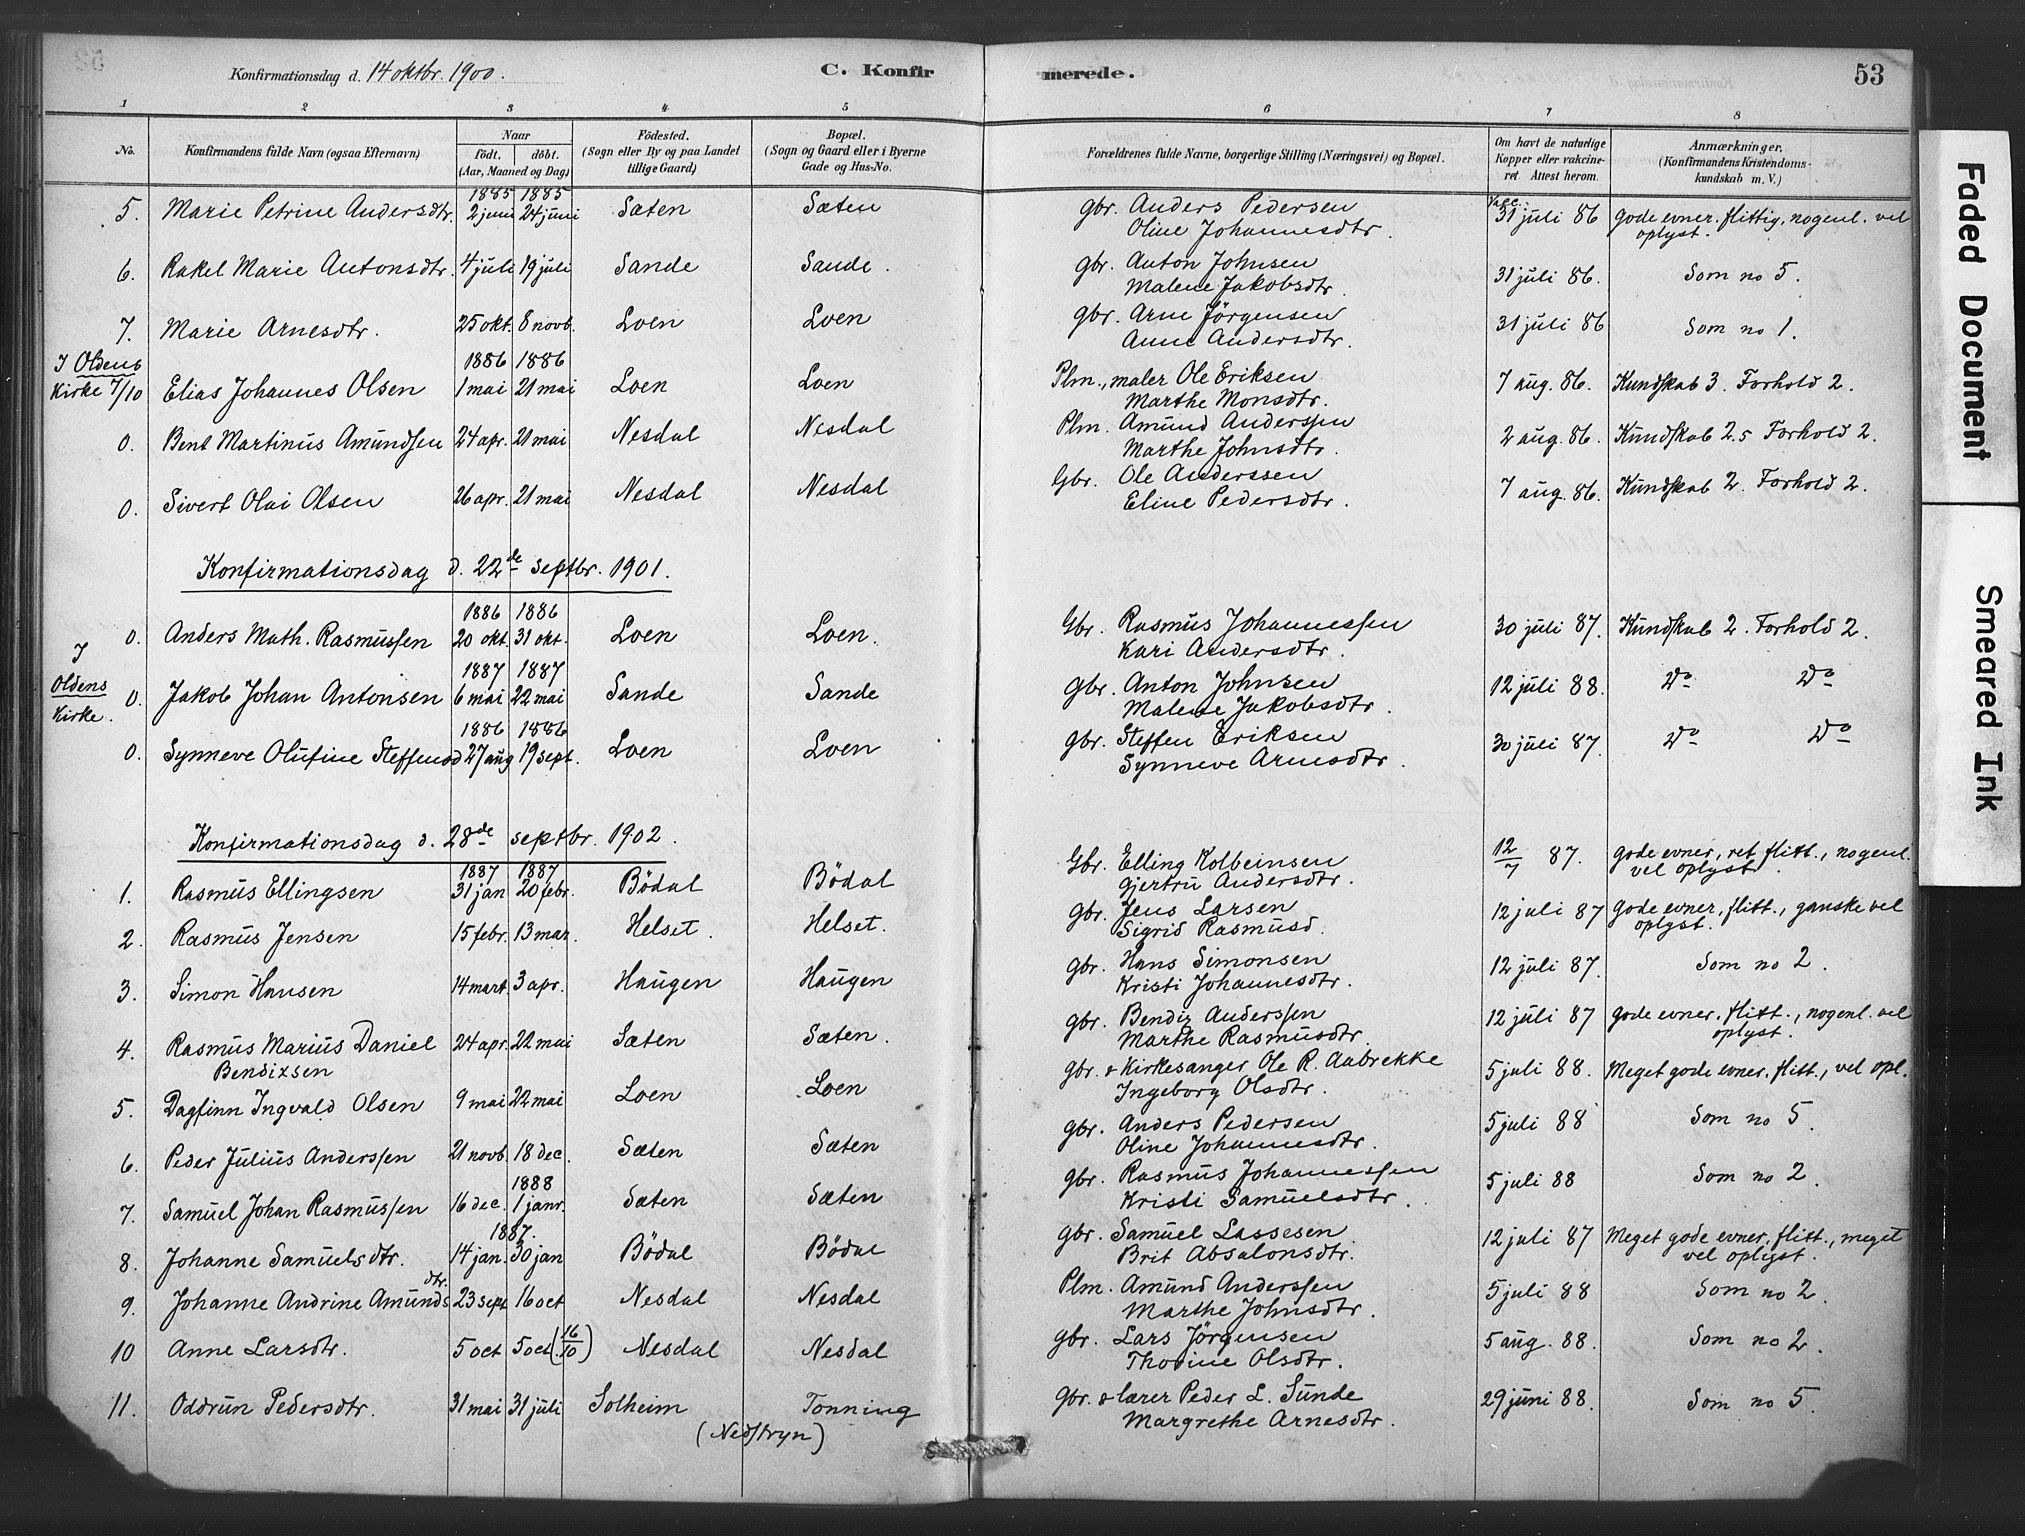 Konfirmationsdag d. 14 oktbr. 1900.
C. Konfirmerede.
53
1 2 3 4 5 6 7 8
No.
Konfirmandens fulde Navn (ogsaa Efternavn)
Naar
født. døbt.
(Aar, Maaned og Dag)
Födested.
(Sogn eller By og paa Landet
tillige Gaard)
Bopæl.
(Sogn og Gaard eller i Byerne
Gade og Hus-No.
Forældrenes fulde Navne, borgerlige Stilling (Næringsvei) og Bopæl.
Om havt de naturlige
Kopper eller vakcine-
ret Attest herom.
Anmærkninger.
(Konfirmandens Kristendoms-
kundskab m. V.)
1885 1885 Vacc.
5. Marie Petrine Andersdtr. 2 juni 24 juni Sæten Sæten gbr. Anders Pedersen 31 juli 86 gode evner, flittig, nogenl. vel
Oline Johannesdtr. oplyst.
6. Rakel Marie Antonsdtr. 4 juli 19 juli Sande Sande. gbr. Anton Johnsen 31 juli 86. Som no 5.
Malene Jakobsdtr.
7. Marie Arnesdtr. 25 okt. 8 novb. Loen Loen gbr. Arne Jörgensen 31 juli 86 Som no 1.
Anne Andersdtr.
I Oldens 1886 1886
Kirke 7/10 Elias Johannes Olsen 1 mai 21 mai Loen Loen Plm., maler Ole Eriksen 7 aug. 86. Kundskab 3. Forhold 2.
Marthe Monsdtr.
0. Bent Martinus Amundsen 24 apr. 21 mai Nesdal Nesdal Plm. Amund Anderssen 2 aug. 86. Kundskab 2.5 Forhold 2.
Marthe Johnsdtr.
0. Sivert Olai Olsen 26 apr. 21 mai Nesdal Nesdal Gbr. Ole Anderssen 7 aug. 86. Kundskab 2. Forhold 2.
Eline Pedersdtr.
Konfirmationsdag d. 22de septbr. 1901.
1886 1886
0. Anders Math. Rasmussen 20 okt. 31 okt. Loen Loen. Gbr. Rasmus Johannessen 30 juli 87. Kundskab 2. Forhold 2.
Kari Andersdtr.
I
Oldens
Kirke.
1887 1887
0. Jakob Johan Antonsen 6 mai 22 mai Sande Sande gbr. Anton Johnsen 12 juli 88. Do Do
Malene Jakobsdtr.
1886 1886
0. Synneve Olufine Steffensd 27 aug 19 sept. Loen Loen gbr. Steffen Eriksen 30 juli 87. Do Do
Synneve Arnesdtr.
Konfirmationsdag d. 28de septbr. 1902.
1887 1887
1. Rasmus Ellingsen 31 jan 20 febr. Bödal Bödal Gbr. Elling Kolbeinsen 12/7 87. gode evner, ret flitt., nogenl.
Gjertru Andersdtr. vel oplyst.
2. Rasmus Jensen 15 febr. 13 mar. Helset. Helset. gbr. Jens Larsen 12 juli 87 gode evner, flitt., ganske vel
Sigrid Rasmusd. oplyst.
3. Simon Hansen 14 mart. 3 apr. Haugen Haugen gbr. Hans Simonsen 12 juli 87. Som no 2.
Kristi Johannesdtr.
4. Rasmus Marius Daniel 24 apr. 22 mai Sæten Sæten. gbr. Bendix Anderssen 12 juli 87 gode evner, flitt., nogenl. vel
Bendixsen Marthe Rasmusdtr. oplyst.
5. Dagfinn Ingvald Olsen 9 mai 22 mai Loen Loen gbr. & Kirkesanger Ole R. Aabrekke 5 juli 88. Meget gode evner, flitt., vel opl.
Ingeborg Olsdtr.
6. Peder Julius Anderssen 21 novb. 18 dec. Sæten Sæten gbr. Anders Pedersen 5 juli 88 Som no 5.
Oline Johannesdtr.
1888
7. Samuel Johan Rasmussen 16 dec. 1 janr. Sæten Sæten gbr. Rasmus Johannessen 5 juli 88 Som no 2.
Kristi Samuelsdtr.
1887.
8. Johanne Samuelsdtr. 14 jan. 30 jan Bödal Bödal gbr. Samuel Lassesen 12 juli 87 Meget gode evner, flitt., meget
Brit Absalonsdtr. vel oplyst.
9. Johanne Andrine Amundsdtr. 23 sept 16 oct Nesdal Nesdal Plm. Amund Anderssen 5 juli 88 Som no 2.
Marthe Johnsdtr.
10 Anne Larsdtr. 5 oct 5 oct (16/10) Nesdal Nesdal gbr. Lars Jörgensen 5 aug. 88. Som no 2.
Thorine Olsdtr.
11. Oddrun Pedersdtr. 31 mai 31 juli Solheim Tonning Gbr. & lærer Peder L. Sunde 29 juni 88. Som no 5.
(Nedstryn) Margrethe Arnesdtr.
Faded Document
Smeared Ink